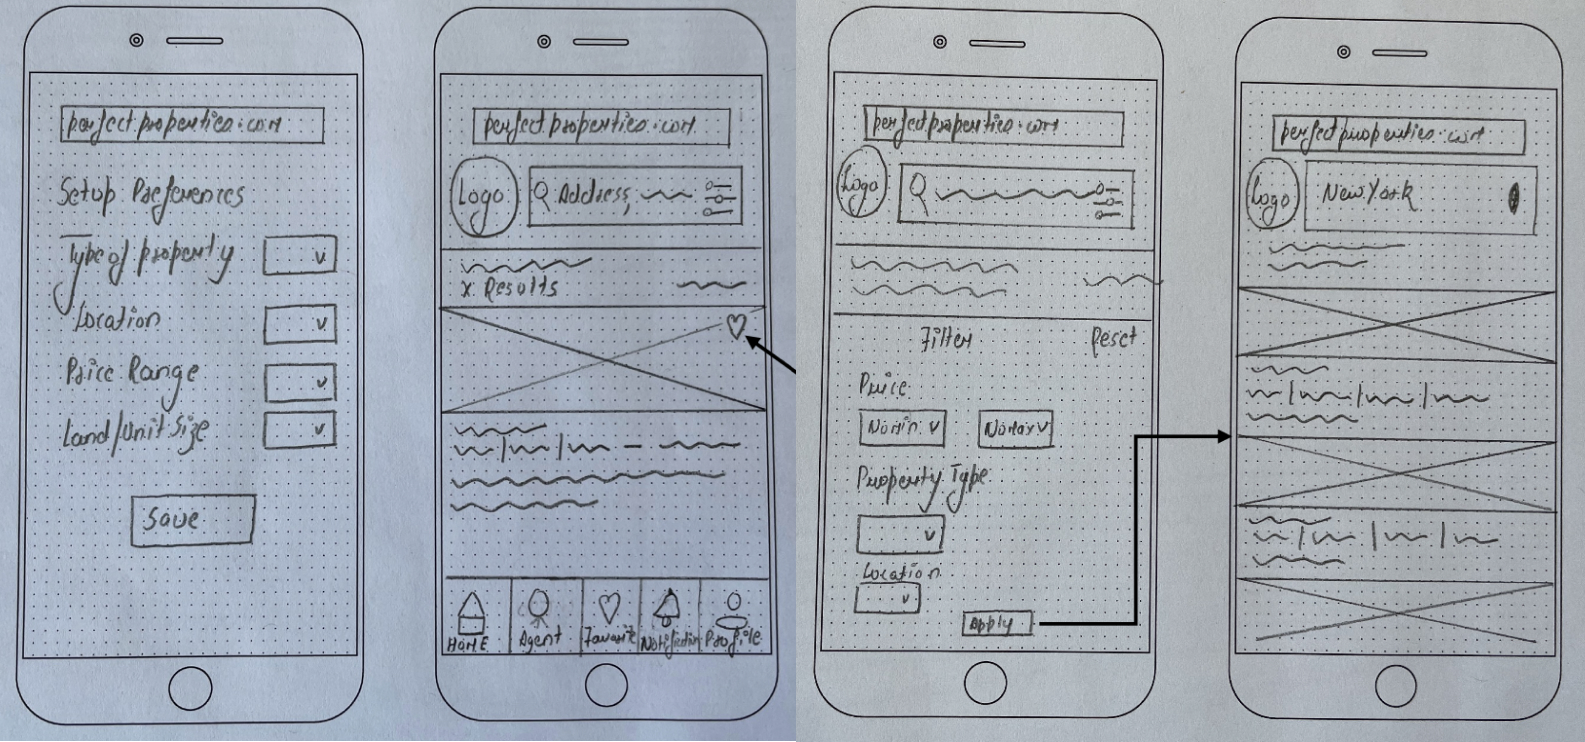 perfectproperties.com
Setup Preferences
Type of property
Location
Price Range
Land/Unit Size
Save
perfectproperties.com
Logo
Address,
x Results
HOME
Agent
Favorite
Notification
Profile
perfectproperties.com
Logo
Filter
Reset
Price
No min
No max
Property Type
Location
Apply
perfectproperties.com
Logo
New York